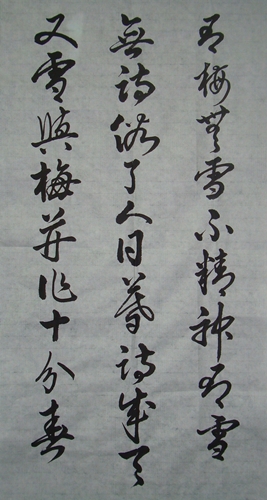 有梅無雪不精神有雪
無詩俗了人日暮詩成天
又雪與梅并作十分春